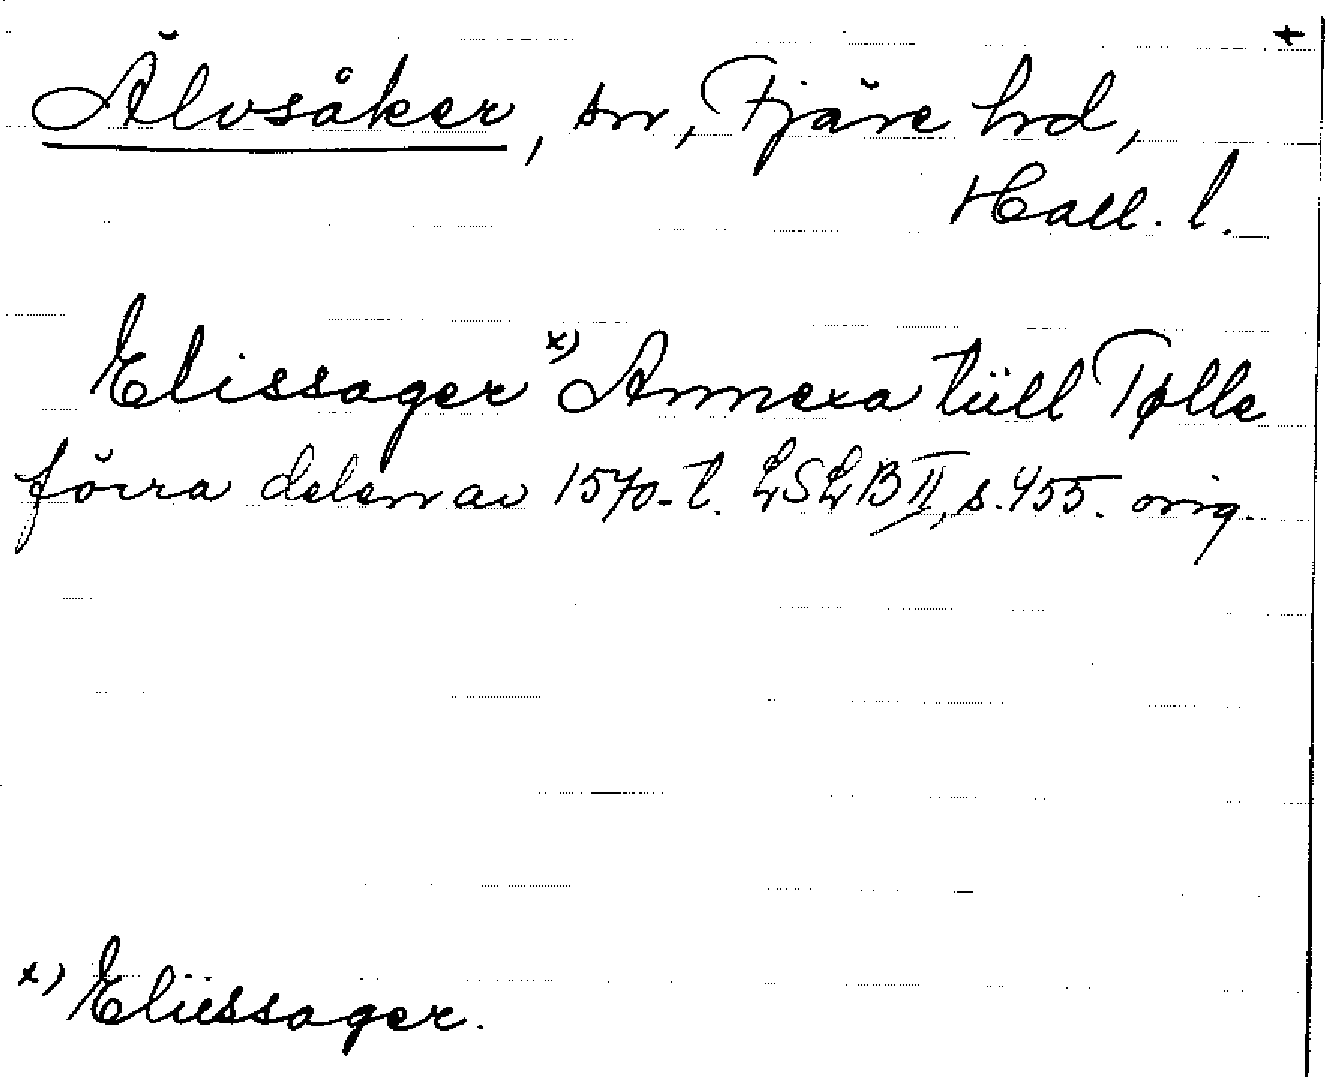 +
Älvsåker, sn, Fjäre hrd,
Hall. l.
Elissager x) Annexa tüll Tølle
förra delen av 1570-t. LSLB II, s. 455. orig.
x) Eliessager.